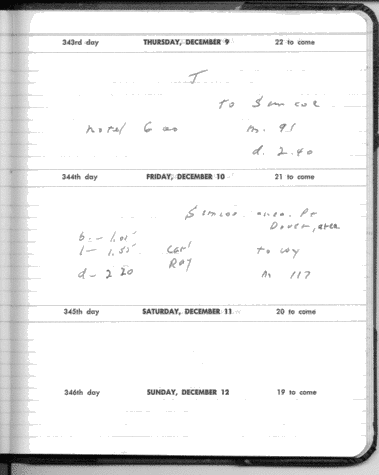 343rd day THURSDAY, DECEMBER 9 22 to come
T
to Simcoe
hotel 6 00 m. 91
d. 2.40
344th day FRIDAY, DECEMBER 10 21 to come
Simcoe area. Pt
Dover, area
b. - 1.05
l - 1.55 Carl to
d - 2 20 Roy m 117
345th day SATURDAY, DECEMBER 11 20 to come
346th day SUNDAY, DECEMBER 12 19 to come